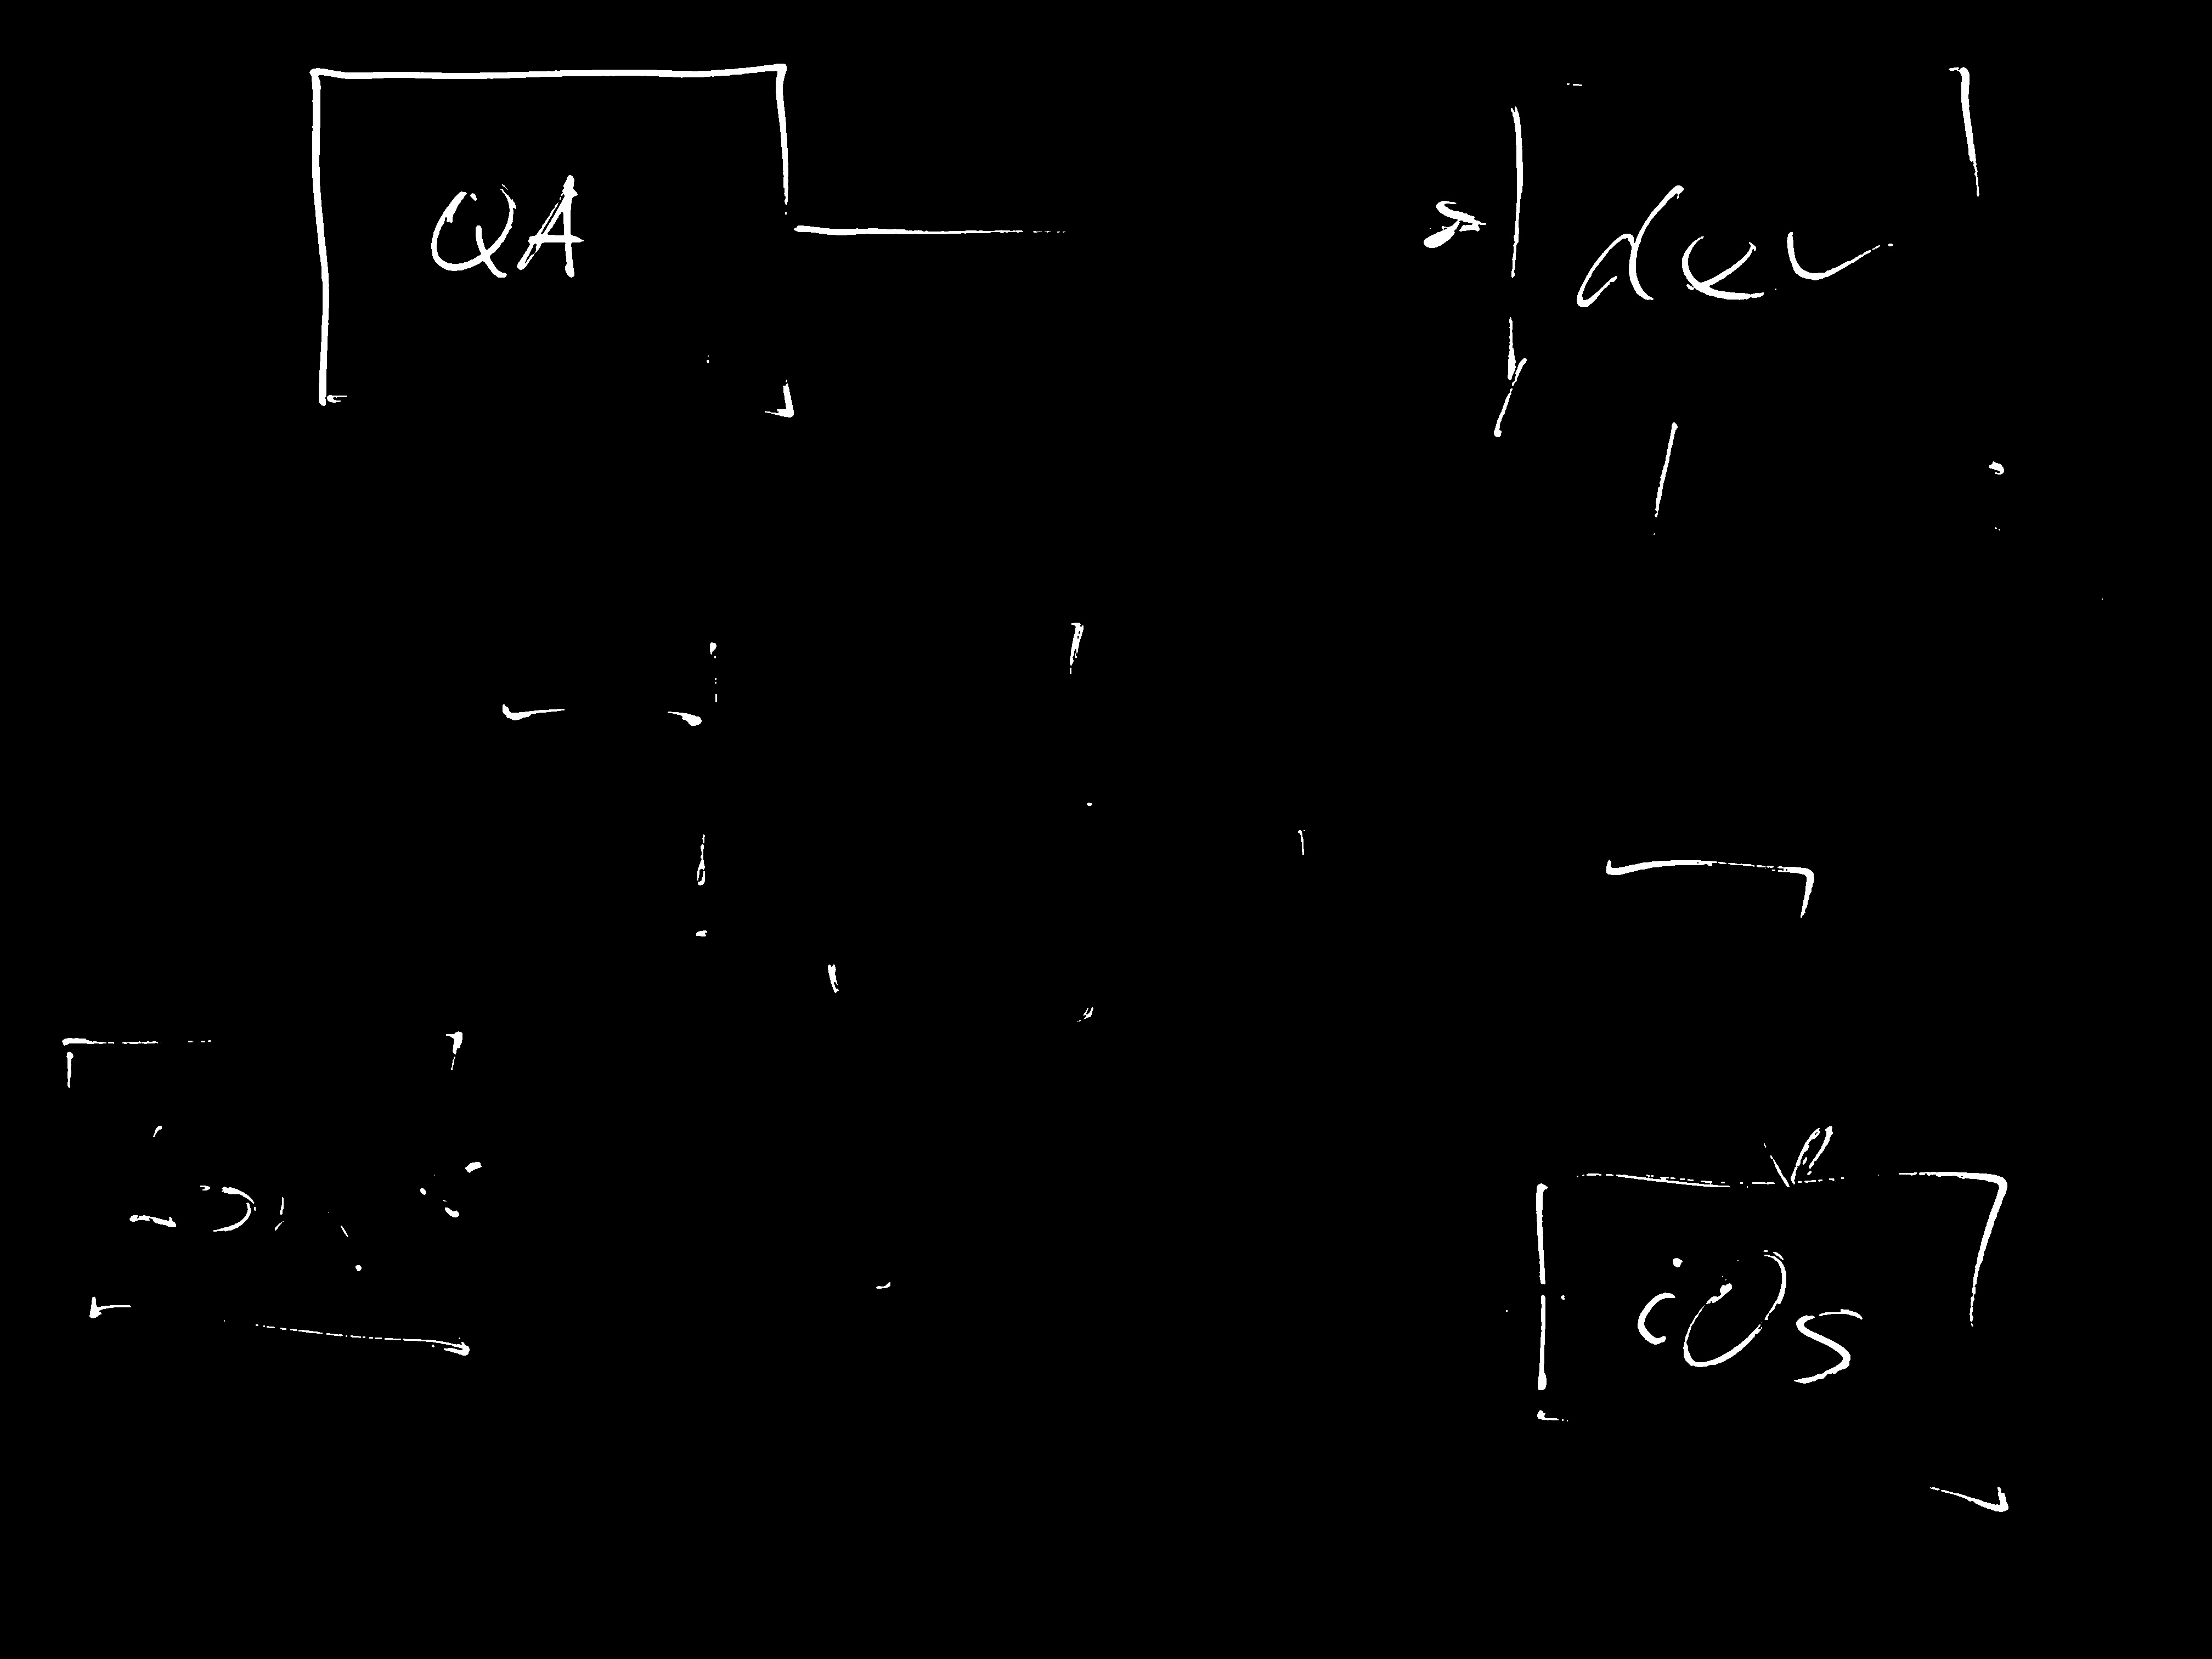 QA
dev
iOS